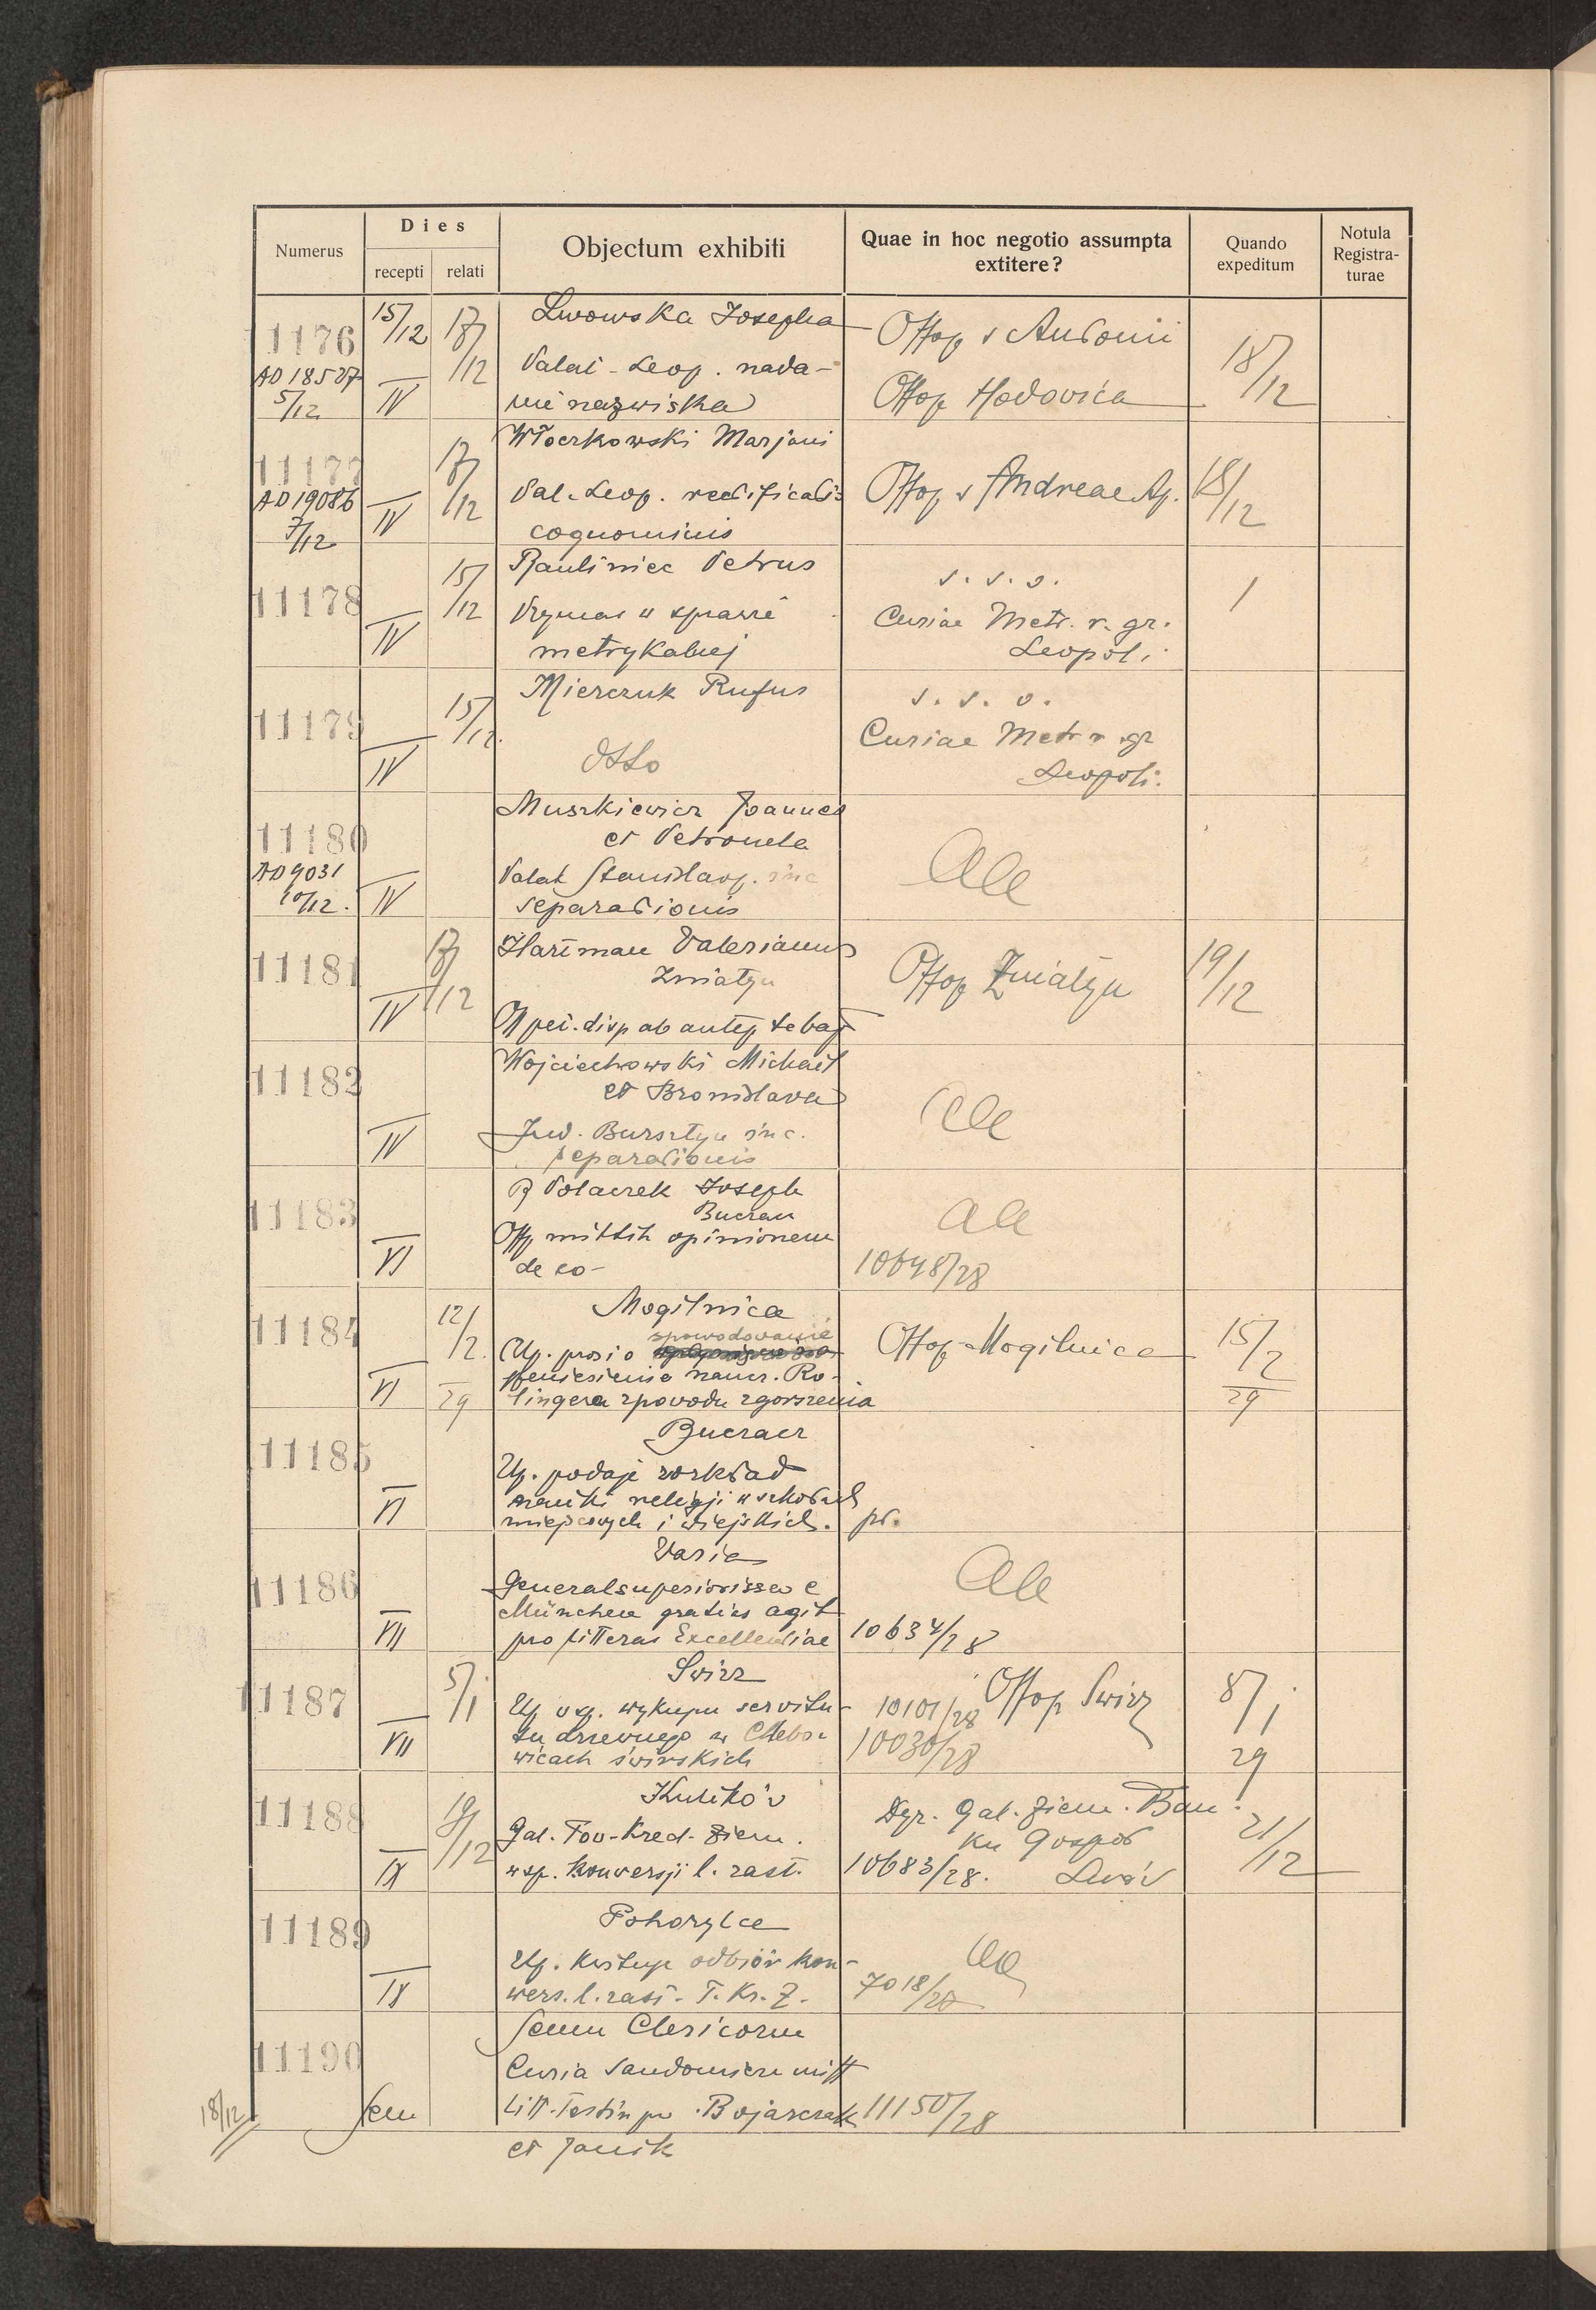 Numerus
Dies
recepti
relati
Objectum exhibiti
Quae in hoc negotio assumpta
extitere?
Quando
expeditum
Notula
Registra-
turae
11176
15/12
17/12
Lwowska Josepha
Offop s Antonii
18/12
AD 18527
5/12
IV
Palat - Leop. nada-
nie nazwiska
Offop Hodovica
11177
17/12
Włoczkowski Marjani
AD 19086
7/12
IV
Pal. Leop. rectificatis
cognominis
Offop s Andreae Ap.
18/12
11178
15/12
IV
Pauliniec Petrus
w sprawie
metrykalnej
s. s. o.
Curiae Metr. r. gr.
Leopoli
/
11179
15/12
IV
Mierczuk Rufus
Otto
s. s. o.
Curiae Metr r. gr
Leopoli.
11180
AD 9031
10/12.
IV
Muszkiewicz Joannes
et Petronela
Palat Stanislaop. inc
separationis
11181
17/12
IV
Hartman Valerianus
Zniatyn
disp ab
Offop Zniatyn
19/12
11182
IV
Wojciechowski Michael
et Bronislava
Jud. Bursztyn inc.
separationis
11183
VI
Polaczek Joseph
Buczacz
Offp mittit opinionem
de eo-
10648/28
11184
12/2.
29
VI
Mogilnica
spowodowanie
Up. prosi o
przeniesienia naucz. Ro-
lingera zpowodu zgorszenia
Offop Mogilnica
15/2
29
11185
VI
Buczacz
Up. podaje rozkład
nauki religji w szkołach
miejscowych i wiejskich.
11186
VII
Varia
Generalsuperiorissa e
München gratias agit
pro litteras Excellentiae
10634/28
11187
5/1
VII
Swirz
Up wsp. wykupu servitu-
tu drzewnego w Chlebo-
wicach świrskich
10101/28
10030/28
Offop Swirz
8/1
29
11188
19/12
IX
Kulików
Gal. Tow. Kred. Ziem.
wsp. konwersji l. zast.
Dyr. Gal. Ziem. Ban
ku Gospod
10683/28. Lwów
21/12
11189
IX
Pohorylce
Up. kwituje odbiór kon-
wers. l. zast. T. Kr. Z.
7018/28
11190
18/12
Sem
Semin Clericorum
Curia Sandomierz mitt
Litt. Testim pro Bojarczak
et Janik
11150/28